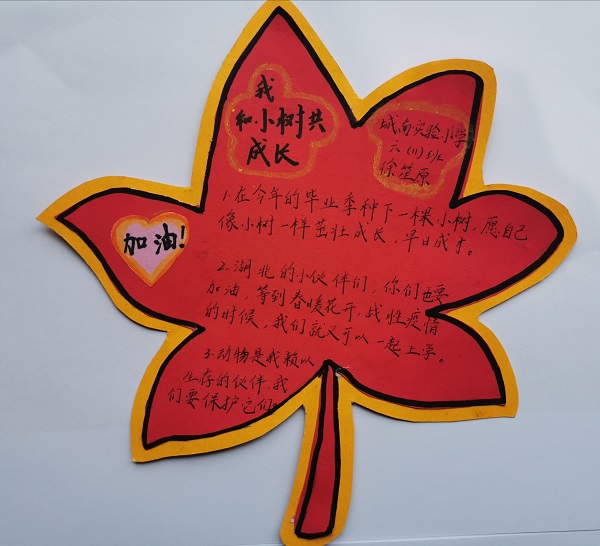 我
和小树共
成长
城南实验小学
六(11)班
徐笙原
加油!
1.在今年的毕业季种下一棵小树,愿自己
像小树一样茁壮成长,早日成才。
2.湖北的小伙伴们,你们也要
加油,等到春暖花开,战胜疫情
的时候,我们就又可以一起上学。
3.动物是我赖以
生存的伙伴,我
们要保护它们。